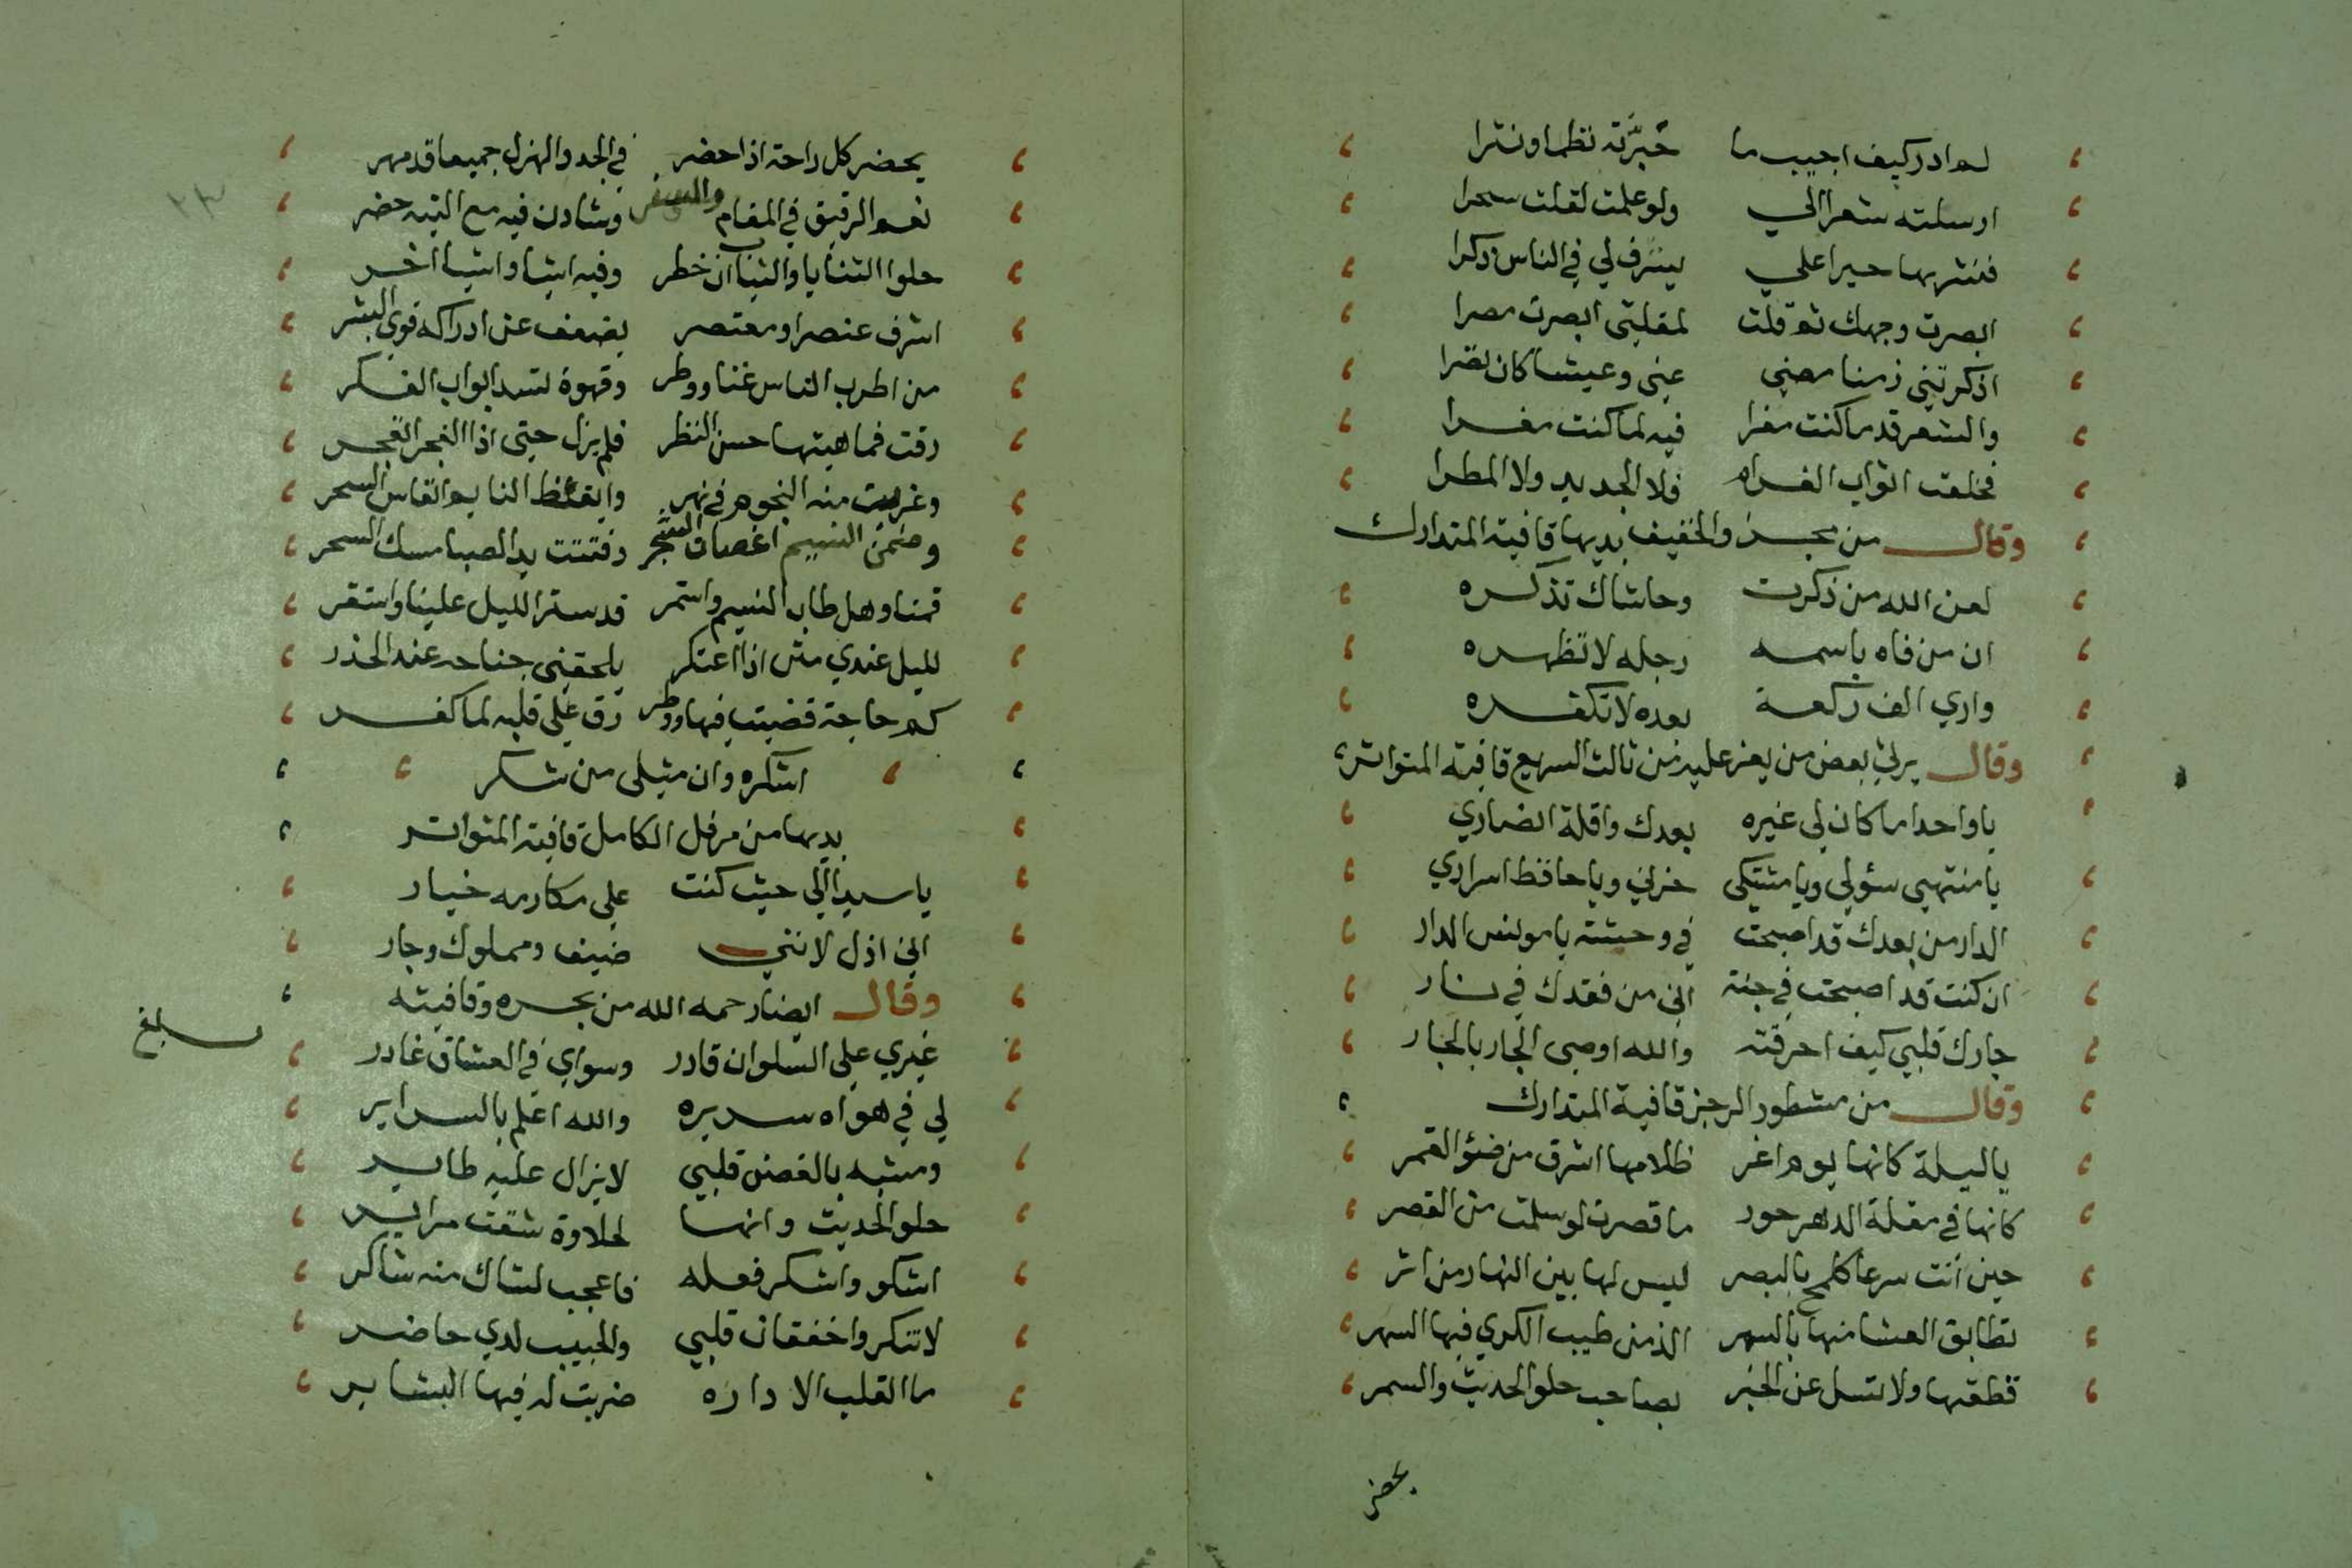 لم ادر كيف اجيب ما حَبَّرْتَه نظما ونثرا
ارسلته شعرا الي ولو علمت لقلت سحرا
فنشر بها حبرا علي يشرف لي في الناس ذكرا
ابصرت وجهك ثم قلت لمقلتي ابصرت مصرا
اذكرتني زمنا مضي عني وعيشا كان نضرا
والشعر قدما كنت مغرا فيه لما كنت مغرا
فخلعت اثواب الغرام فلا الجديد ولا المطرا
وقال من مجزو الخفيف بديها قافية المتدارك
لعن الله من ذكرت وحاشاك تذكره
ان من فاه باسمه دجله لا تطهره
واري الف ركعة بعده لا تكفره
وقال يرثي بعض من يعز عليه من ثالث السريع قافية المتواتر
يا واحدا ما كان لي غيره بعدك واقلة انصاري
يا منتهي سؤلي ويا مشتكى حزني ويا حافظ اسراري
الدار من بعدك قد اصبحت في وحشة يا مونس الدار
ان كنت قد اصبحت في جنة اني من فقدك في نار
جارك قلبي كيف احرقته والله اوصى الجار بالجار
وقال من مشطور الرجز قافية المتدارك
يا ليلة كانها يوم اغر ظلامها اشرق من ضؤ القمر
كانها في مقلة الدهر حور ما قصرت لو سلمت من القصر
حين أتت سرعا كلمح بالبصر ليس لها بين النهار من اثر
تطابق العشا منها بالسهر الذ من طيب الكري فيها السهر
قطعتها ولا تسل عن الخبر بصاحب حلو الحديث والسمر
يحضر
يحضر كل راحة اذا حضر في الجد والهزل جميعا قد مهر
نعم الرفيق في المقام والسفر وشادن فيه مع التيه خفر
حلو الثنايا والثياب ان خطر وفيه اشيا واشيا اخر
اشرف عنصر او معتصر يضعف عن ادراكه قوي البشر
من اطرب الناس غنا ووطر وقهوة تسد ابواب الفكر
رقت فما هيتها حسن النظر فلم يزل حتى اذا الفجر انفجر
وغربت منه النجوم في نهر وايقظ النايم انفاس السحر
وضمن النسيم اغصان الشجر وفتتت يد الصبا مسك السحر
قمنا وهل طاب النسيم واستمر قد ستر الليل علينا واستقر
لليل عندي منن اذا اعتكر يلحفني جناحه عند الحذر
كم حاجة قضيت فيها ووطر رق علي قلبه لما كفر
اشكره وان مثلى من شكر
بديها من مرفل الكامل قافية المتواتر
يا سيدا لي حيث كنت على مكارمه خيار
اني اذل لانني ضيف ومملوك وجار
وقال ايضا رحمه الله من بحره وقافيته
غيري على السلوان قادر وسواي في العشاق غادر
لي في هواه سريره والله اعلم بالسراير
ومشبه بالغصن قلبي لا يزال عليه طاير
حلو الحديث وانها لحلاوة شقت مراير
اشكو واشكر فعله فاعجب لشاك منه شاكر
لا تنكروا خفقان قلبي والحبيب لدي حاضر
ما القلب الا داره ضربت له فيها البشاير
بلغ